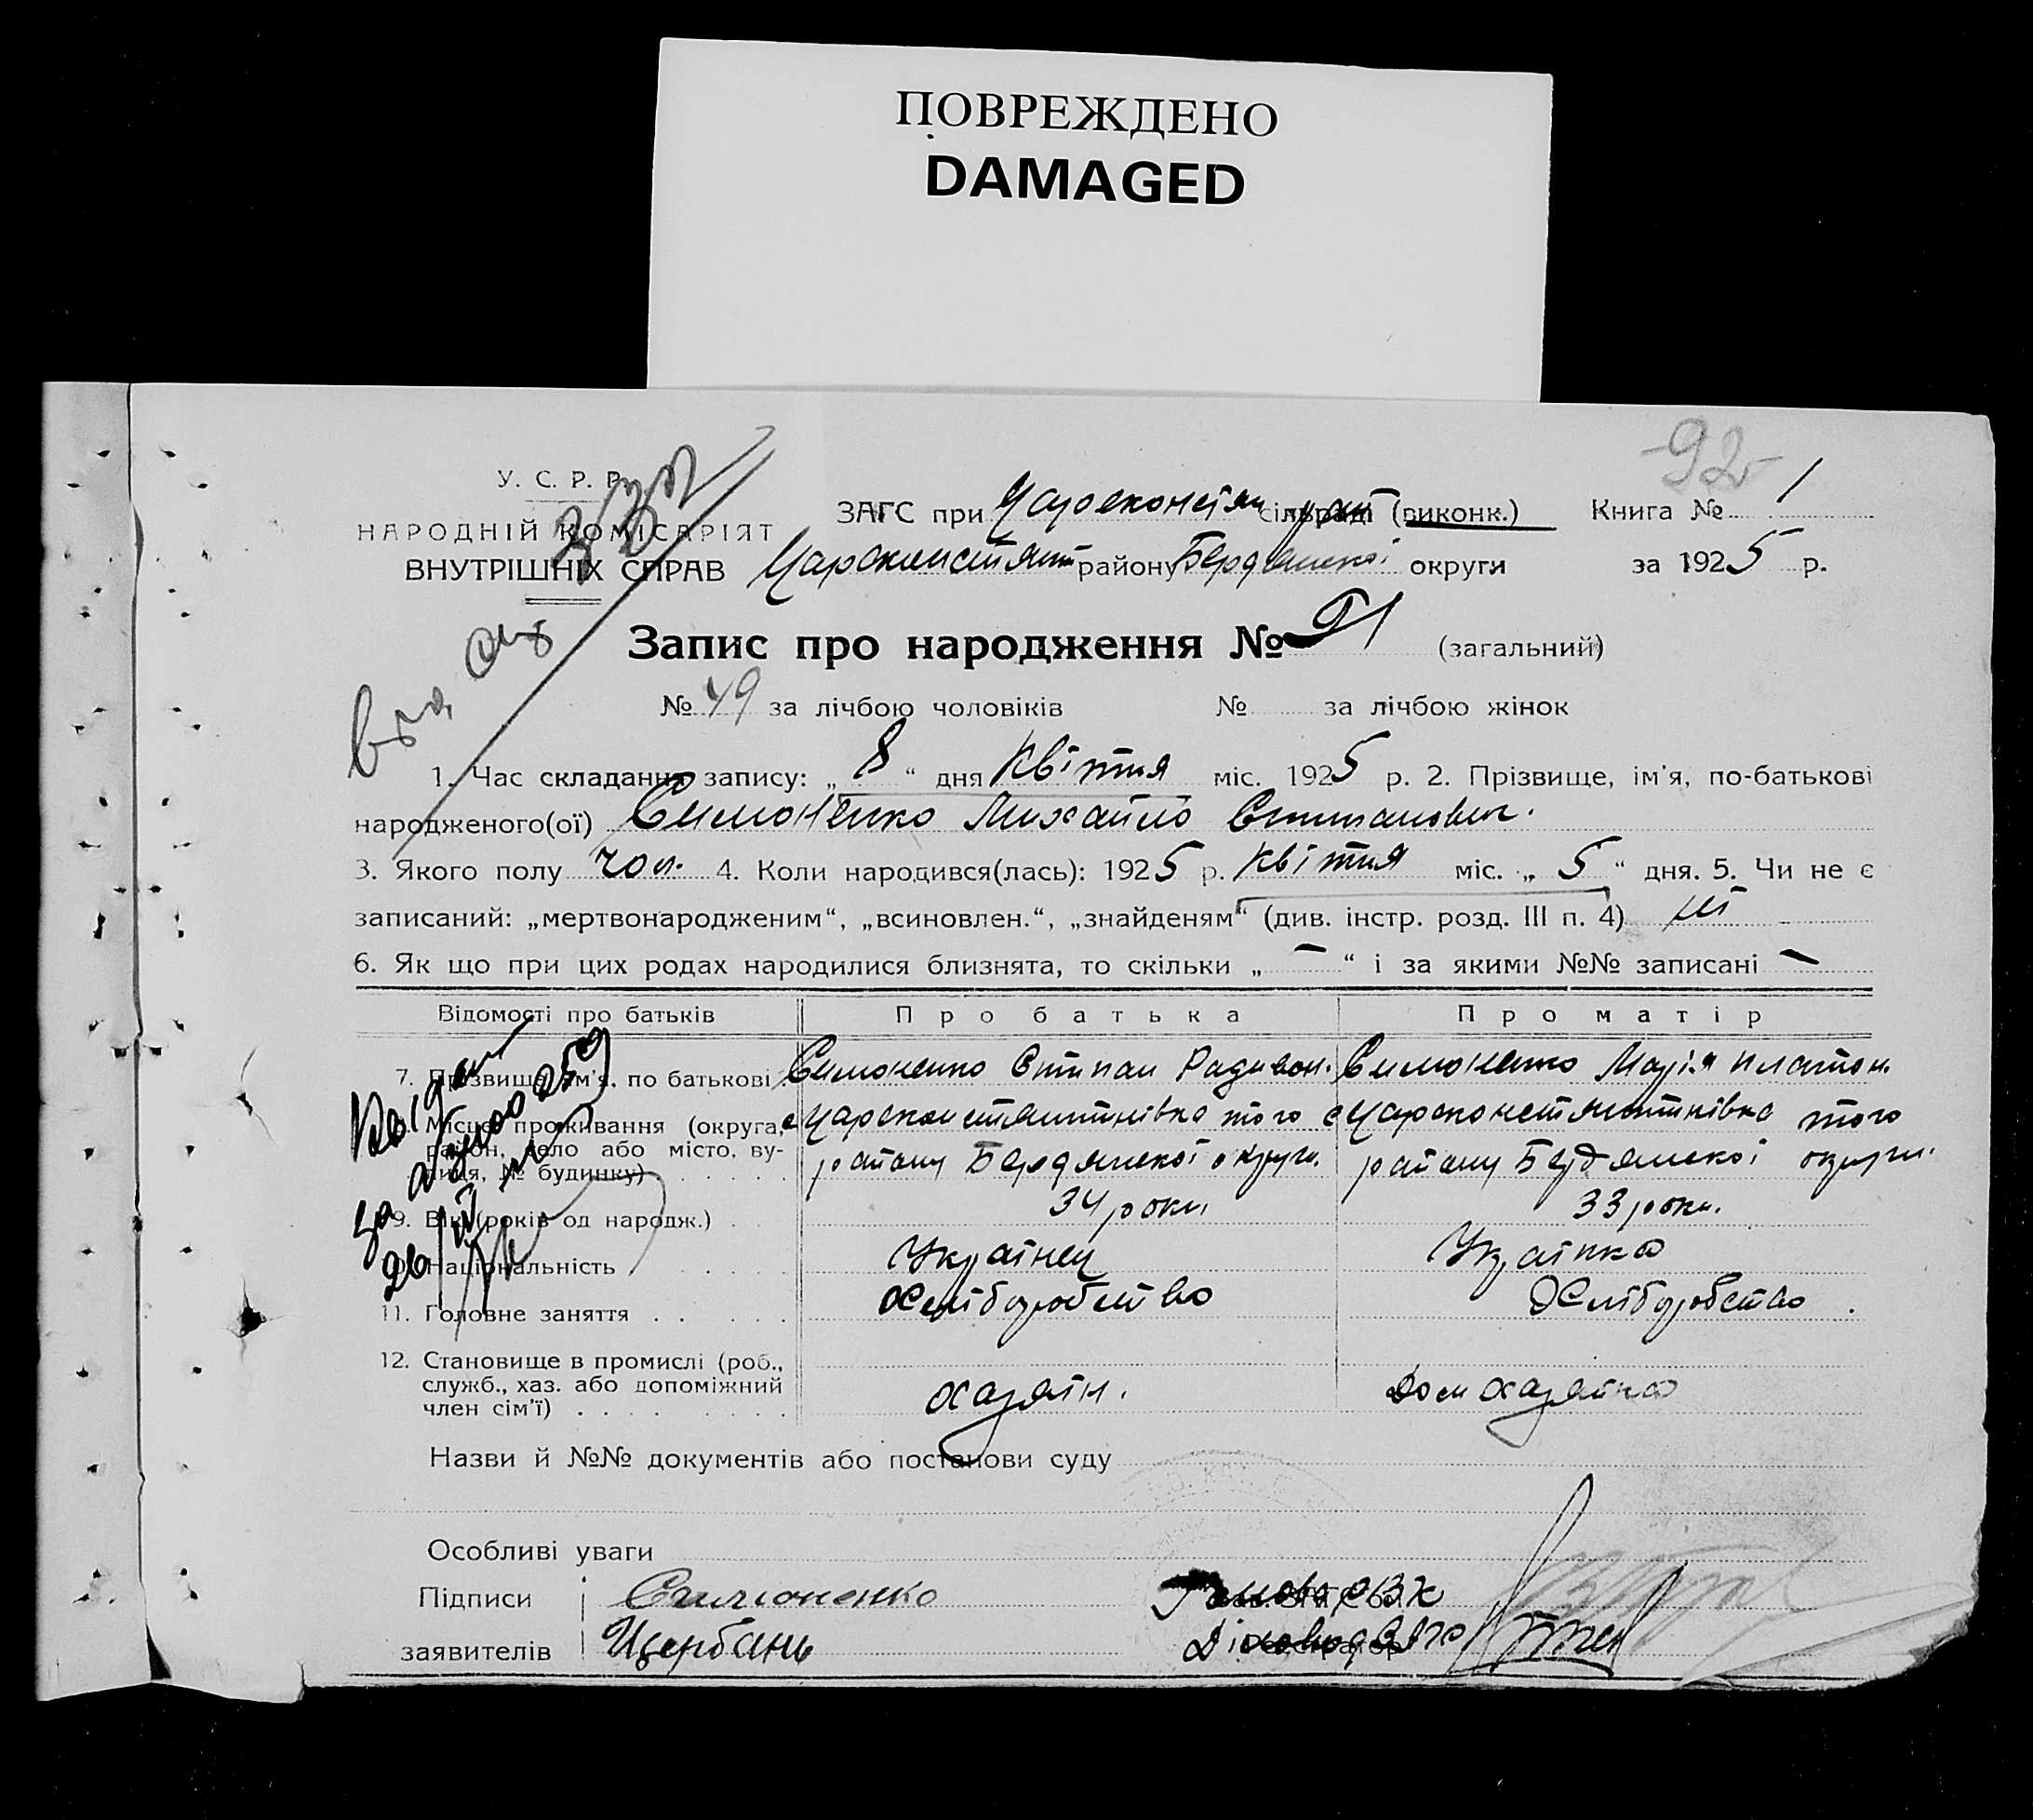 ПОВРЕЖДЕНО
DAMAGED
92
У. С. Р. Р.
НАРОДНІЙ КОМІСАРІЯТ
ВНУТРІШНІХ СПРАВ
ЗАГС при Цареконстян сільраді (виконк.) Книга № 1
Царсконстянт району Бердянскої округи за 1925 р.
Запис про народження № 91 (загальний)
№ 49 за лічбою чоловіків № за лічбою жінок
1. Час складання запису: „ 8 “ дня Квітня міс. 1925 р. 2. Прізвище, ім’я, по-батькові
народженого(ої) Симоненко Михайло Степанович.
3. Якого полу чол. 4. Коли народився(лась): 1925 р. Квітня міс. „ 5 “ дня. 5. Чи не є
записаний: „мертвонародженим“, „всиновлен.“, „знайденям“ (див. інстр. розд. III п. 4) ні
6. Як що при цих родах народилися близнята, то скільки „ – “ і за якими №№ записані –
Відомості про батьків Про батька Про матір
7. Прізвище, ім’я, по батькові Симоненко Степан Радивон. Симоненко Марія Платон.
8. Місце проживання (округа, район, село або місто, вулиця, № будинку)
с Царсконстянтинівка того с Царсконстянтинівка того
району Бердянскої округи. району Бердянскої округи.
9. Вік (років од народж.) 34 роки 33 роки.
10. Національність Українец Українка
11. Головне заняття Хліборобство Хліборобство.
12. Становище в промислі (роб.,
служб., хаз. або допоміжний хазяїн. Дом хазяйка
член сім’ї)
Назви й №№ документів або постанови суду
Особливі уваги
Підписи Симоненко
заявителів Щербань Діловод